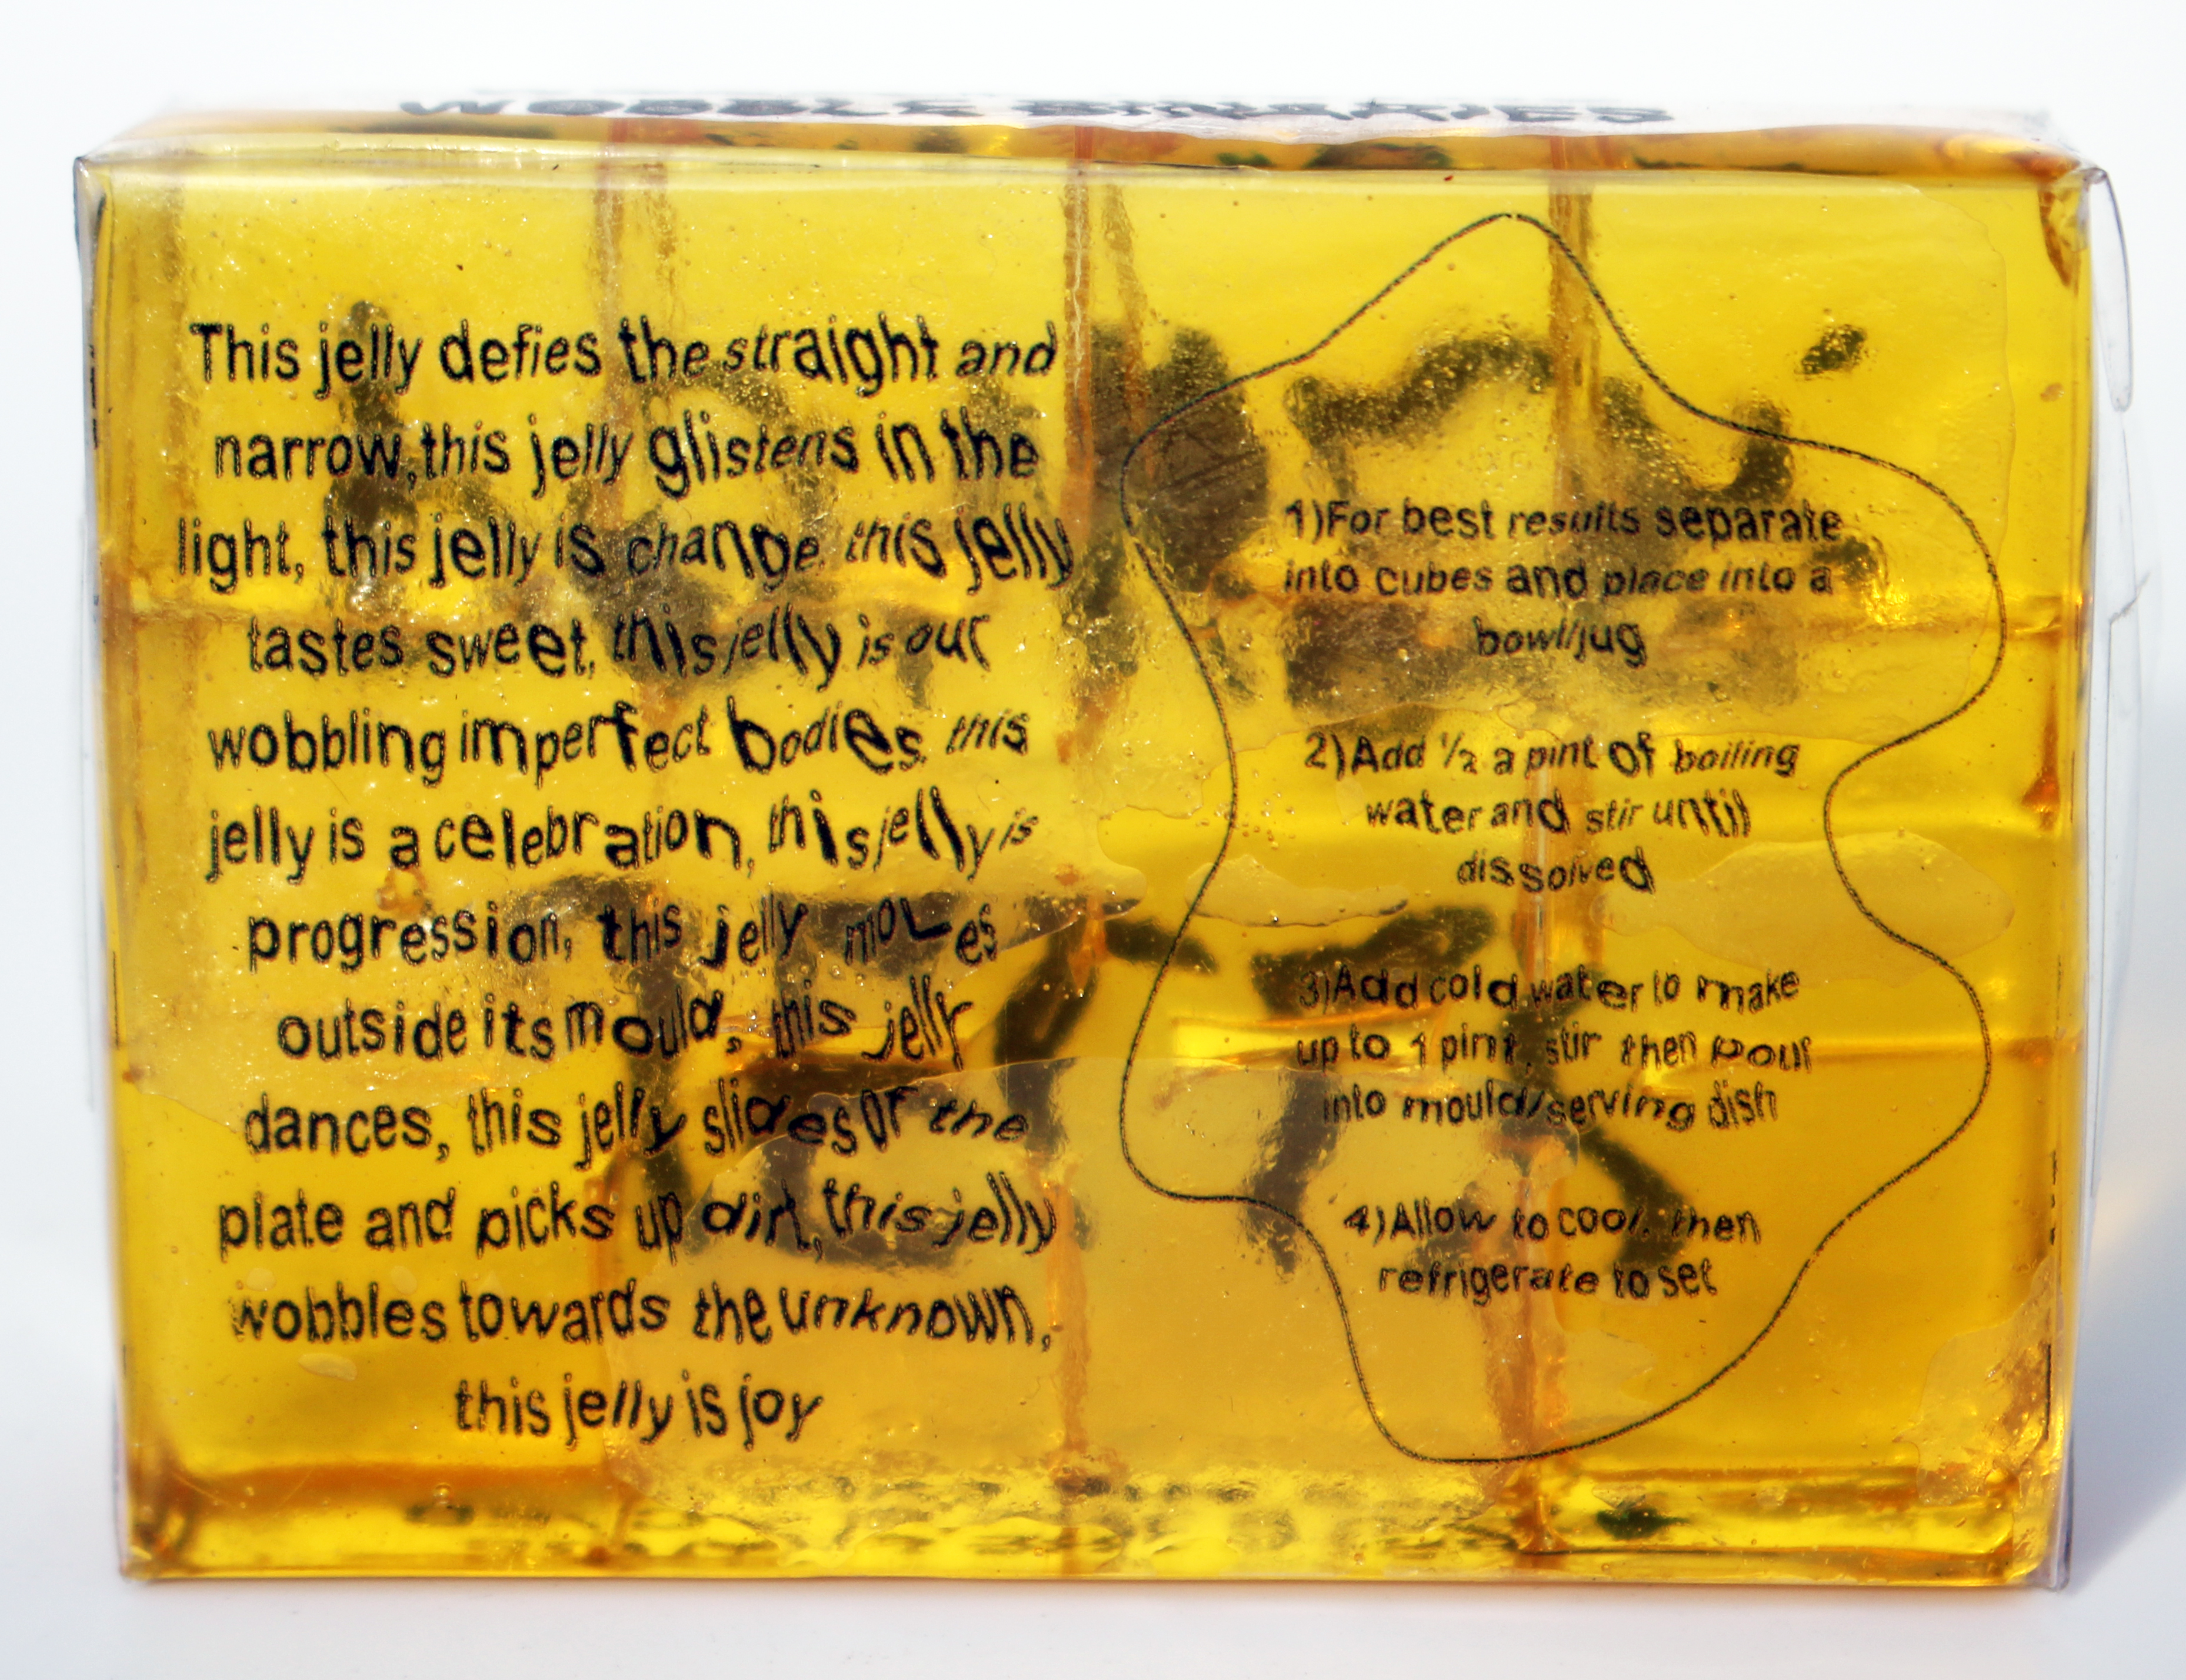 WOBBLE BINARIES
This jelly defies the straight and
narrow, this jelly glistens in the
light, this jelly is change, this jelly
tastes sweet, this jelly is our
wobbling imperfect bodies, this
jelly is a celebration, this jelly is
progression, this jelly moves
outside its mould, this jelly
dances, this jelly slides of the
plate and picks up dirt, this jelly
wobbles towards the unknown,
this jelly is joy
1)For best results separate
into cubes and place into a
bowl/jug
2)Add ½ a pint of boiling
water and stir until
dissolved
3)Add cold water to make
up to 1 pint, stir then pour
into mould/serving dish
4)Allow to cool, then
refrigerate to set